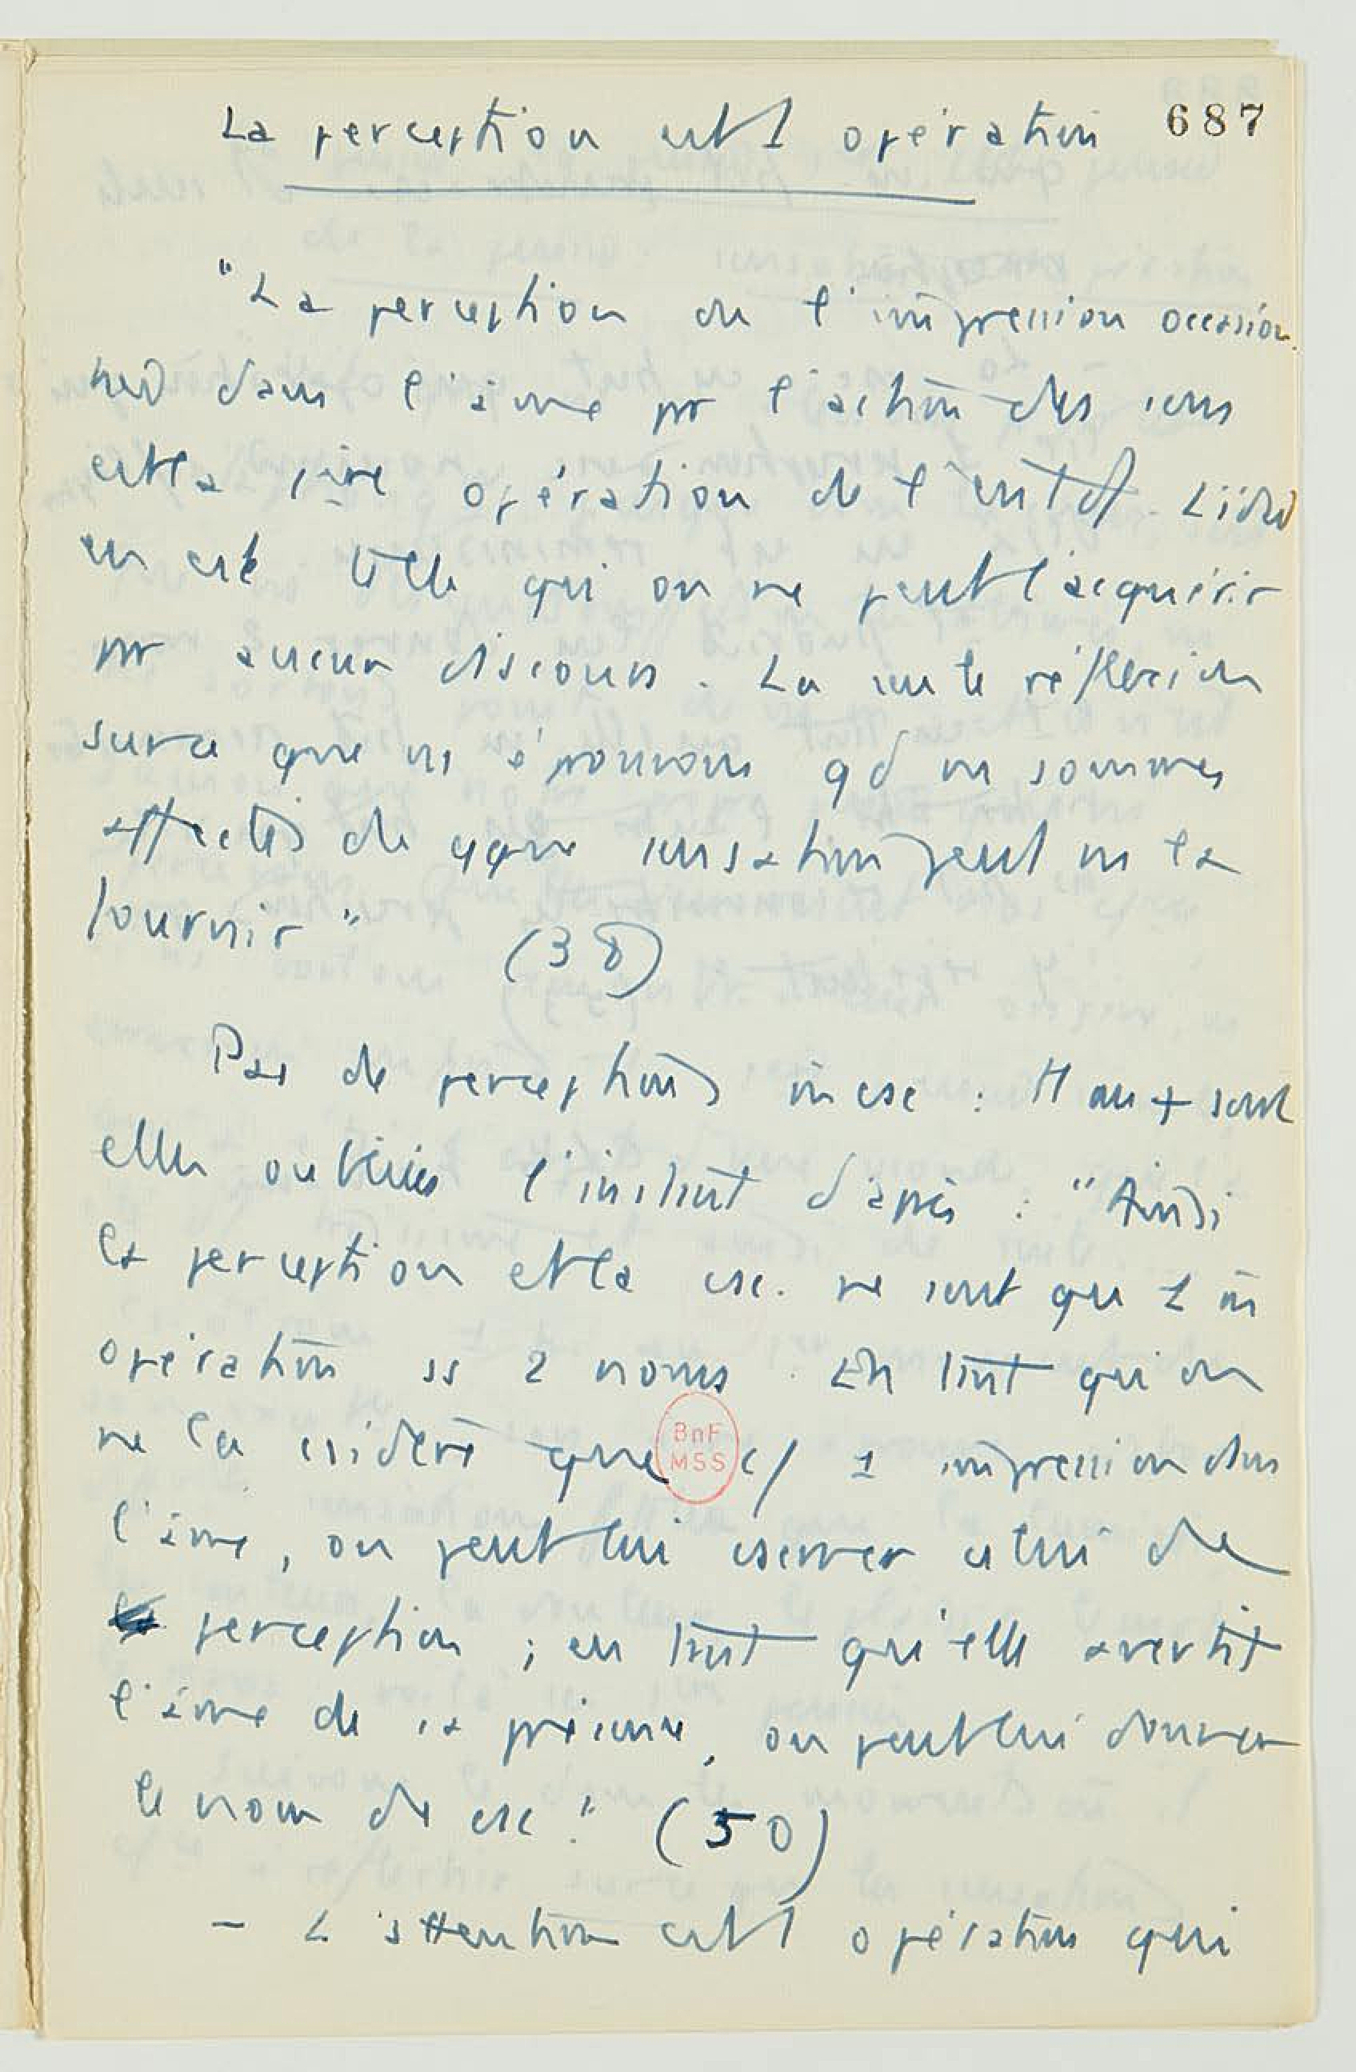 La perception est 1 opération 687
"La perception ou l'impression occasion
née dans l'âme pr l'action des sens
est la 1ère opération de l'entdt. L'idée
en est telle qu'on ne peut l'acquérir
pr aucun discours. La seule réflexion
sur ce que ns éprouvons qd ns sommes
affectés de qque sensation peut ns la
fournir" (38)
Pas de perceptions incsc : tt au + sont
elles oubliées l'instant d'après : "Ainsi
la perception et la csc. ne sont qu'1 m̄
opération ss 2 noms. En tant qu'on
ne la csidère que c/ 1 impression dans
l'âme, on peut lui cserver celui de
perception ; en tant qu'elle avertit
l'âme de sa présence, on peut lui donner
le nom de csc." (50)
BnF
MSS
- L'attention est 1 opération qui